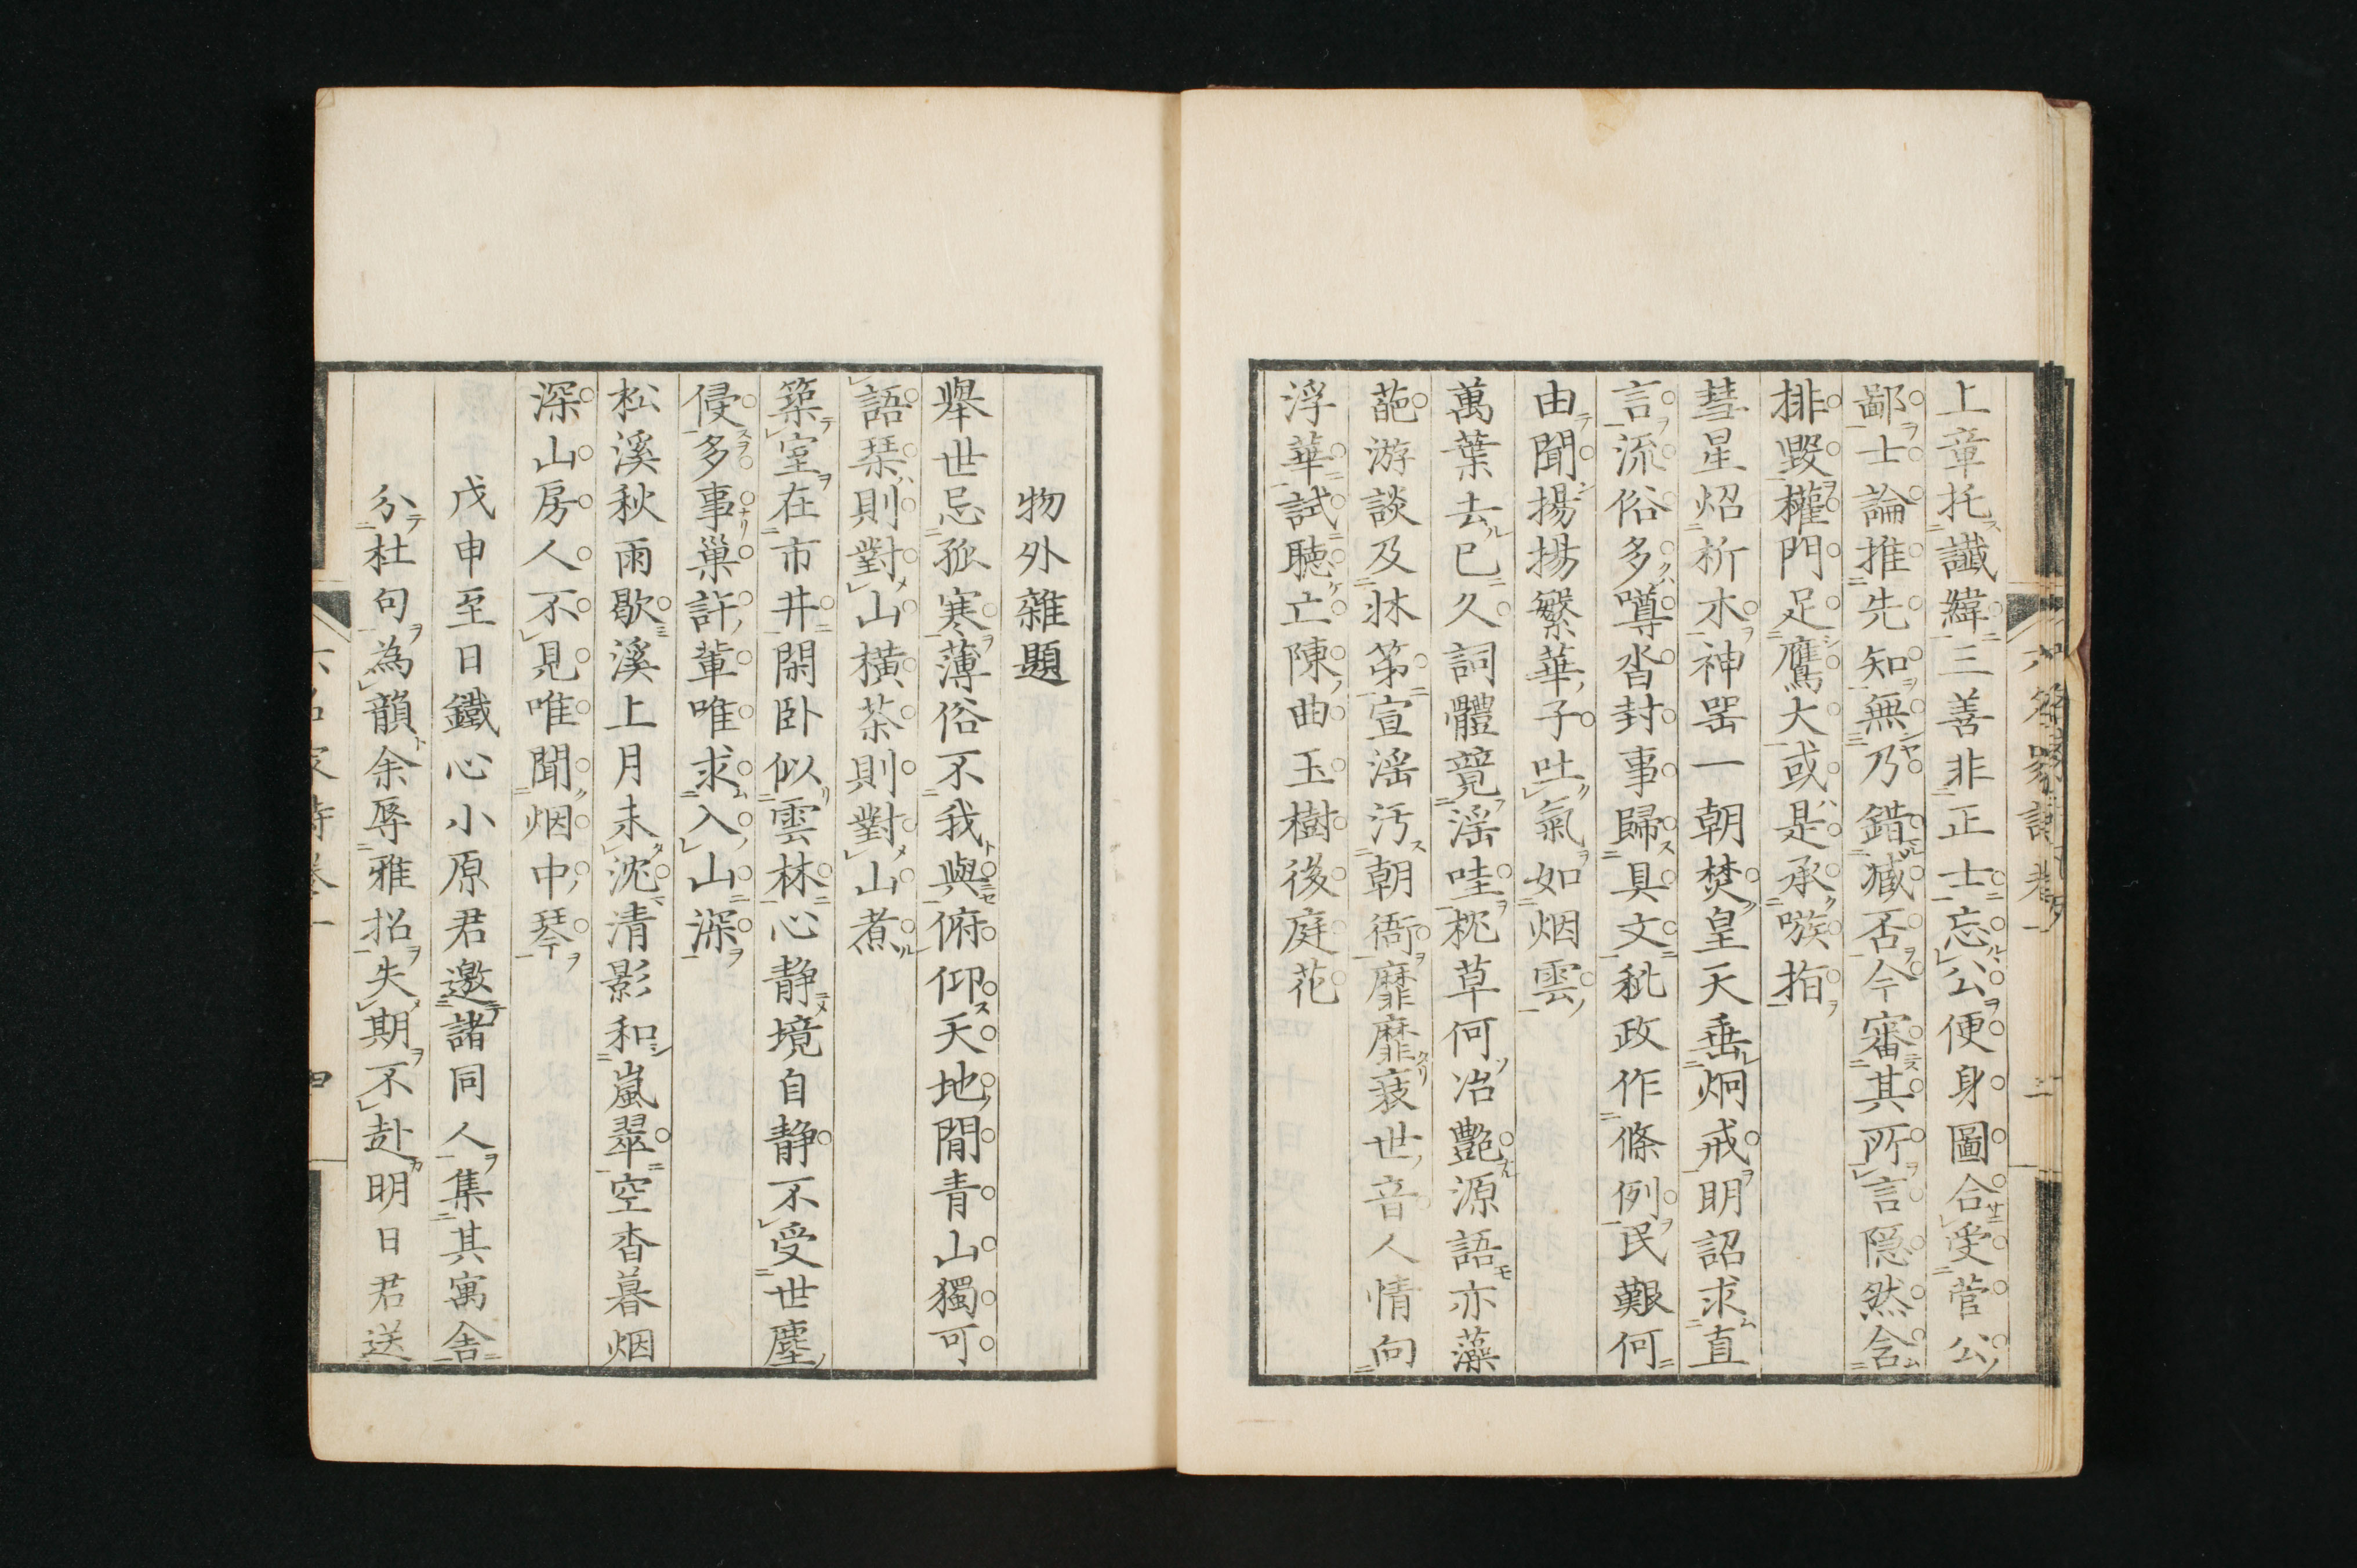 上章托讖緯三善非正士忘公便身圖合受菅公
鄙士論推先知無乃錯臧否今審其所言隠然含
排毀權門足鷹犬或是承嗾指
彗星炤析木神罢一朝焚皇天垂炯戒明詔求直
言流俗多噂沓封事歸具文秕政作條例民艱何
由聞揚揚繁華子吐氣如烟雲
萬葉去已久詞體競滛哇枕草何冶艷源語亦藻
葩游談及牀第宣滛汚朝衙靡靡衰世音人情向
浮華試聽亡陳曲玉樹後庭花
物外雜題
舉世忌孤寒薄俗不我與俯仰天地間青山獨可
語琹則對山橫茶則對山煮
築室在市井閑卧似雲林心静境自静不受世塵
侵多事巢許輩唯求入山深
松溪秋雨歇溪上月未沈清影和嵐翠空杳暮烟
深山房人不見唯聞烟中琴
戊申至日鐵心小原君邀諸同人集其寓舎
分杜句為韻余辱雅招失期不赴明日君送